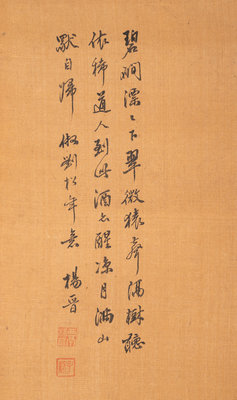 碧磵漂〻下翠微猿聲隔樹聽
依稀道人到此酒亦醒涼月滿山
獸自歸 倣劉松年意 楊晉